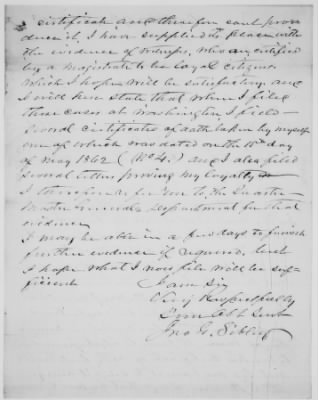 certificate and therefore cant pro-
duce it, I have supplied its place with
the evidence of witnesses, who are certified
by a Magistrate to be loyal citizens
which I hope will be satisfactory, and
I will here state that when I filed
those cases at Washington I filed
several certificates of oath taken by myself
one of which was dated on the 10th day
of May 1862 (No 4.) and I also filed
several letters proving my loyalty,
I therefore refer you to the Quarter
Master Generals Department for that
evidence
I may be able in a few days to furnish
further evidence if required, but
I hope what I now file will be suf-
ficient
I am Sir
Very Respectfully
Your Obt Servt
Jno G. Sibley